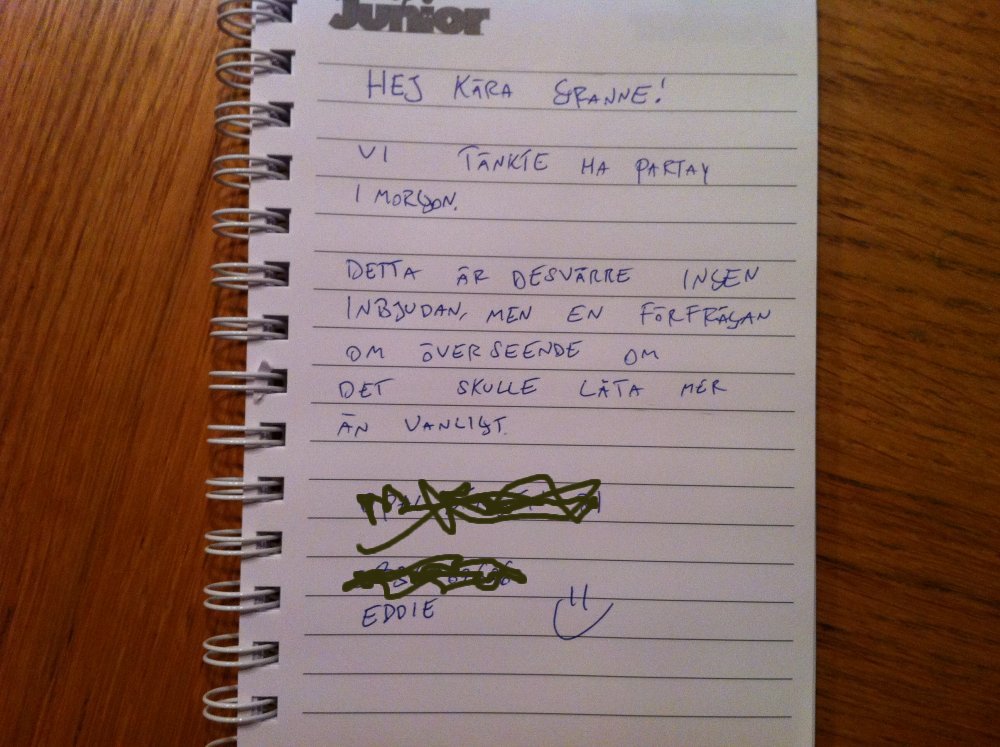 Junior
HEJ KÄRA GRANNE!
VI TÄNKTE HA PARTAY
I MORGON.
DETTA ÄR DESVÄRRE INGEN
INBJUDAN, MEN EN FÖRFRÅGAN
OM ÖVERSEENDE OM
DET SKULLE LÅTA MER
ÄN VANLIGT.
EDDIE